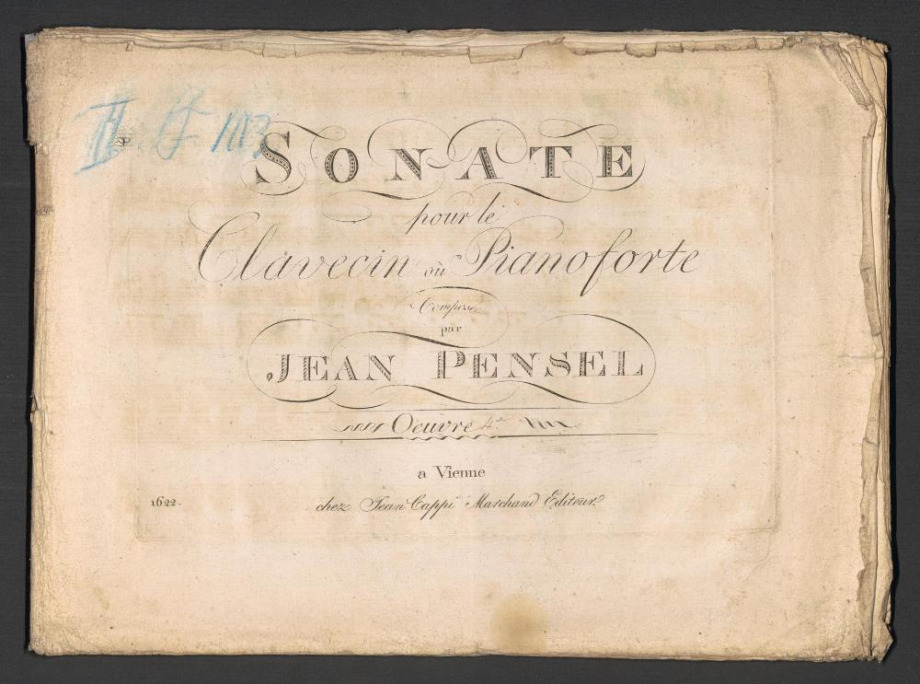 SONATE
pour le
Clavecin où Pianoforte
Composée
par
JEAN PENSEL
Oeuvre 4.
a Vienne
1622.
chez Jean Cappi Marchand Editeur.